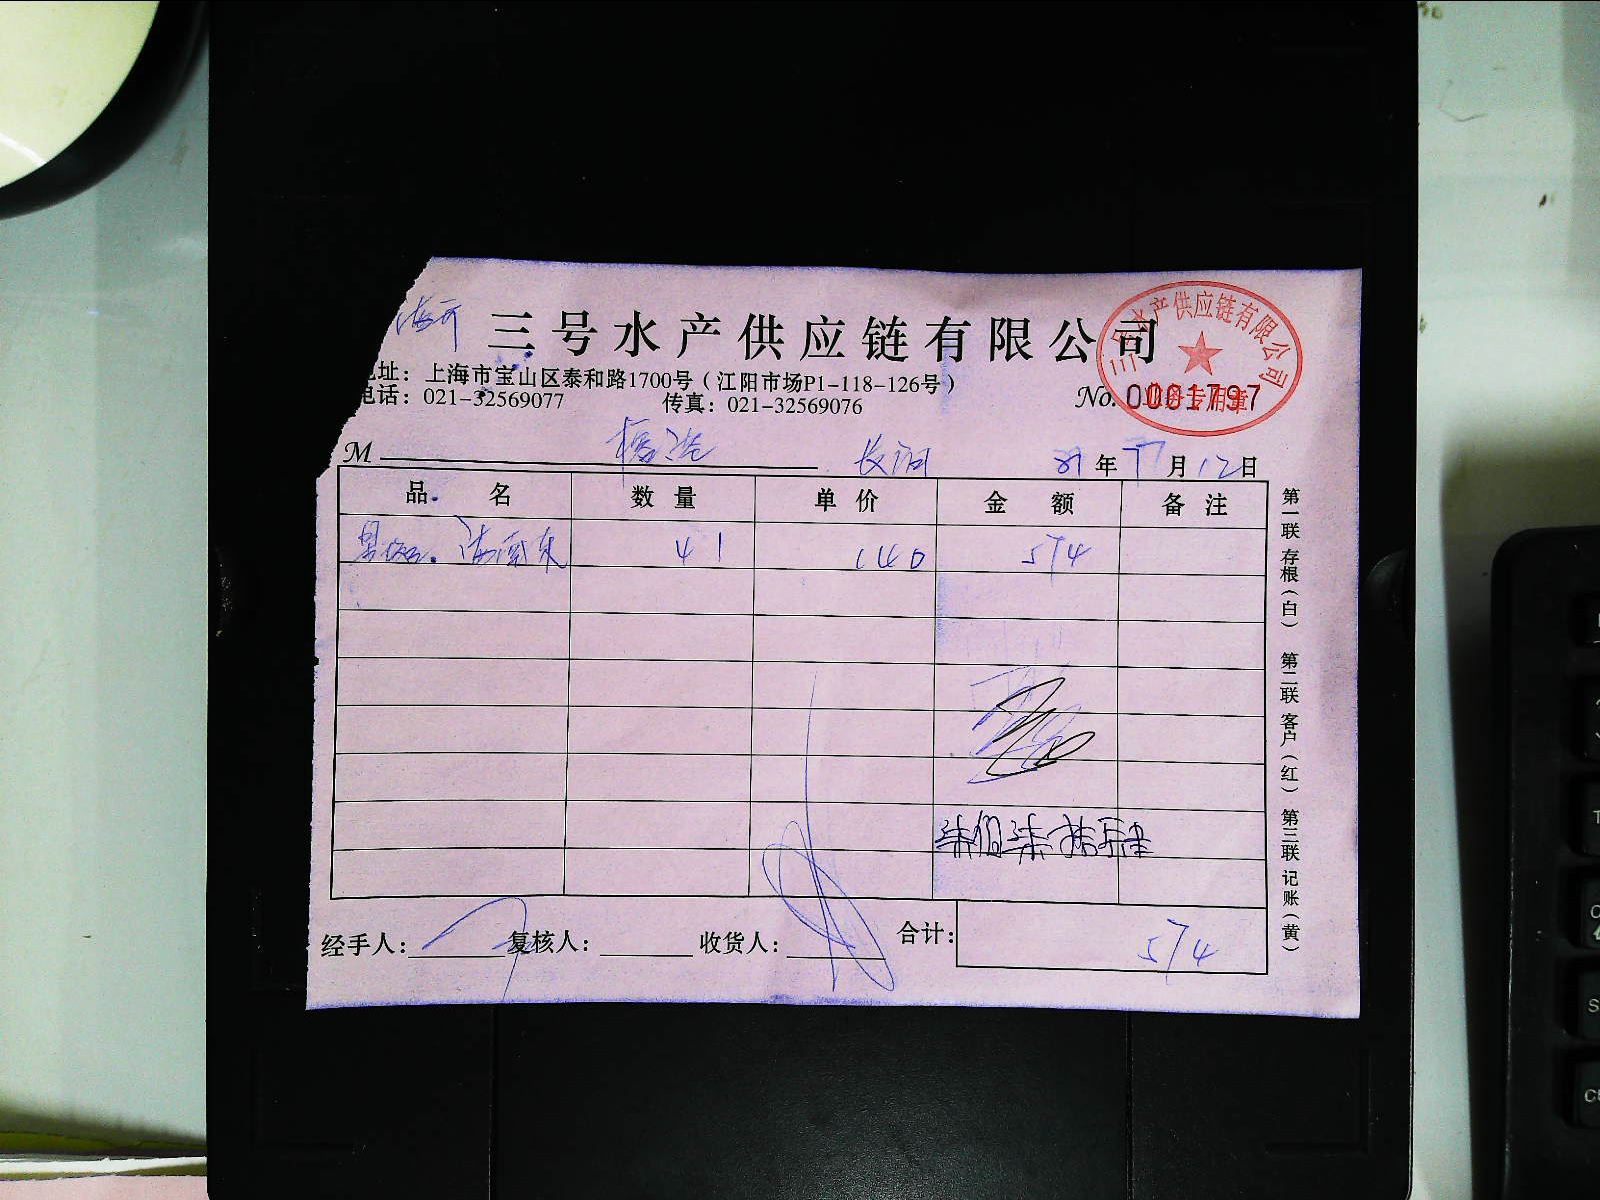 三号水产供应链有限公司
三号水产供应链有限公司
业务专用章
地址：上海市宝山区泰和路1700号（江阳市场P1-118-126号）
电话：021-32569077 传真：021-32569076 No. 0001797
M 年 月 12日
品 名 数 量 单 价 金 额 备 注
41 140 574
柒拾
经手人： 复核人： 收货人： 合计： 574
第一联 存根（白） 第二联 客户（红） 第三联 记账（黄）